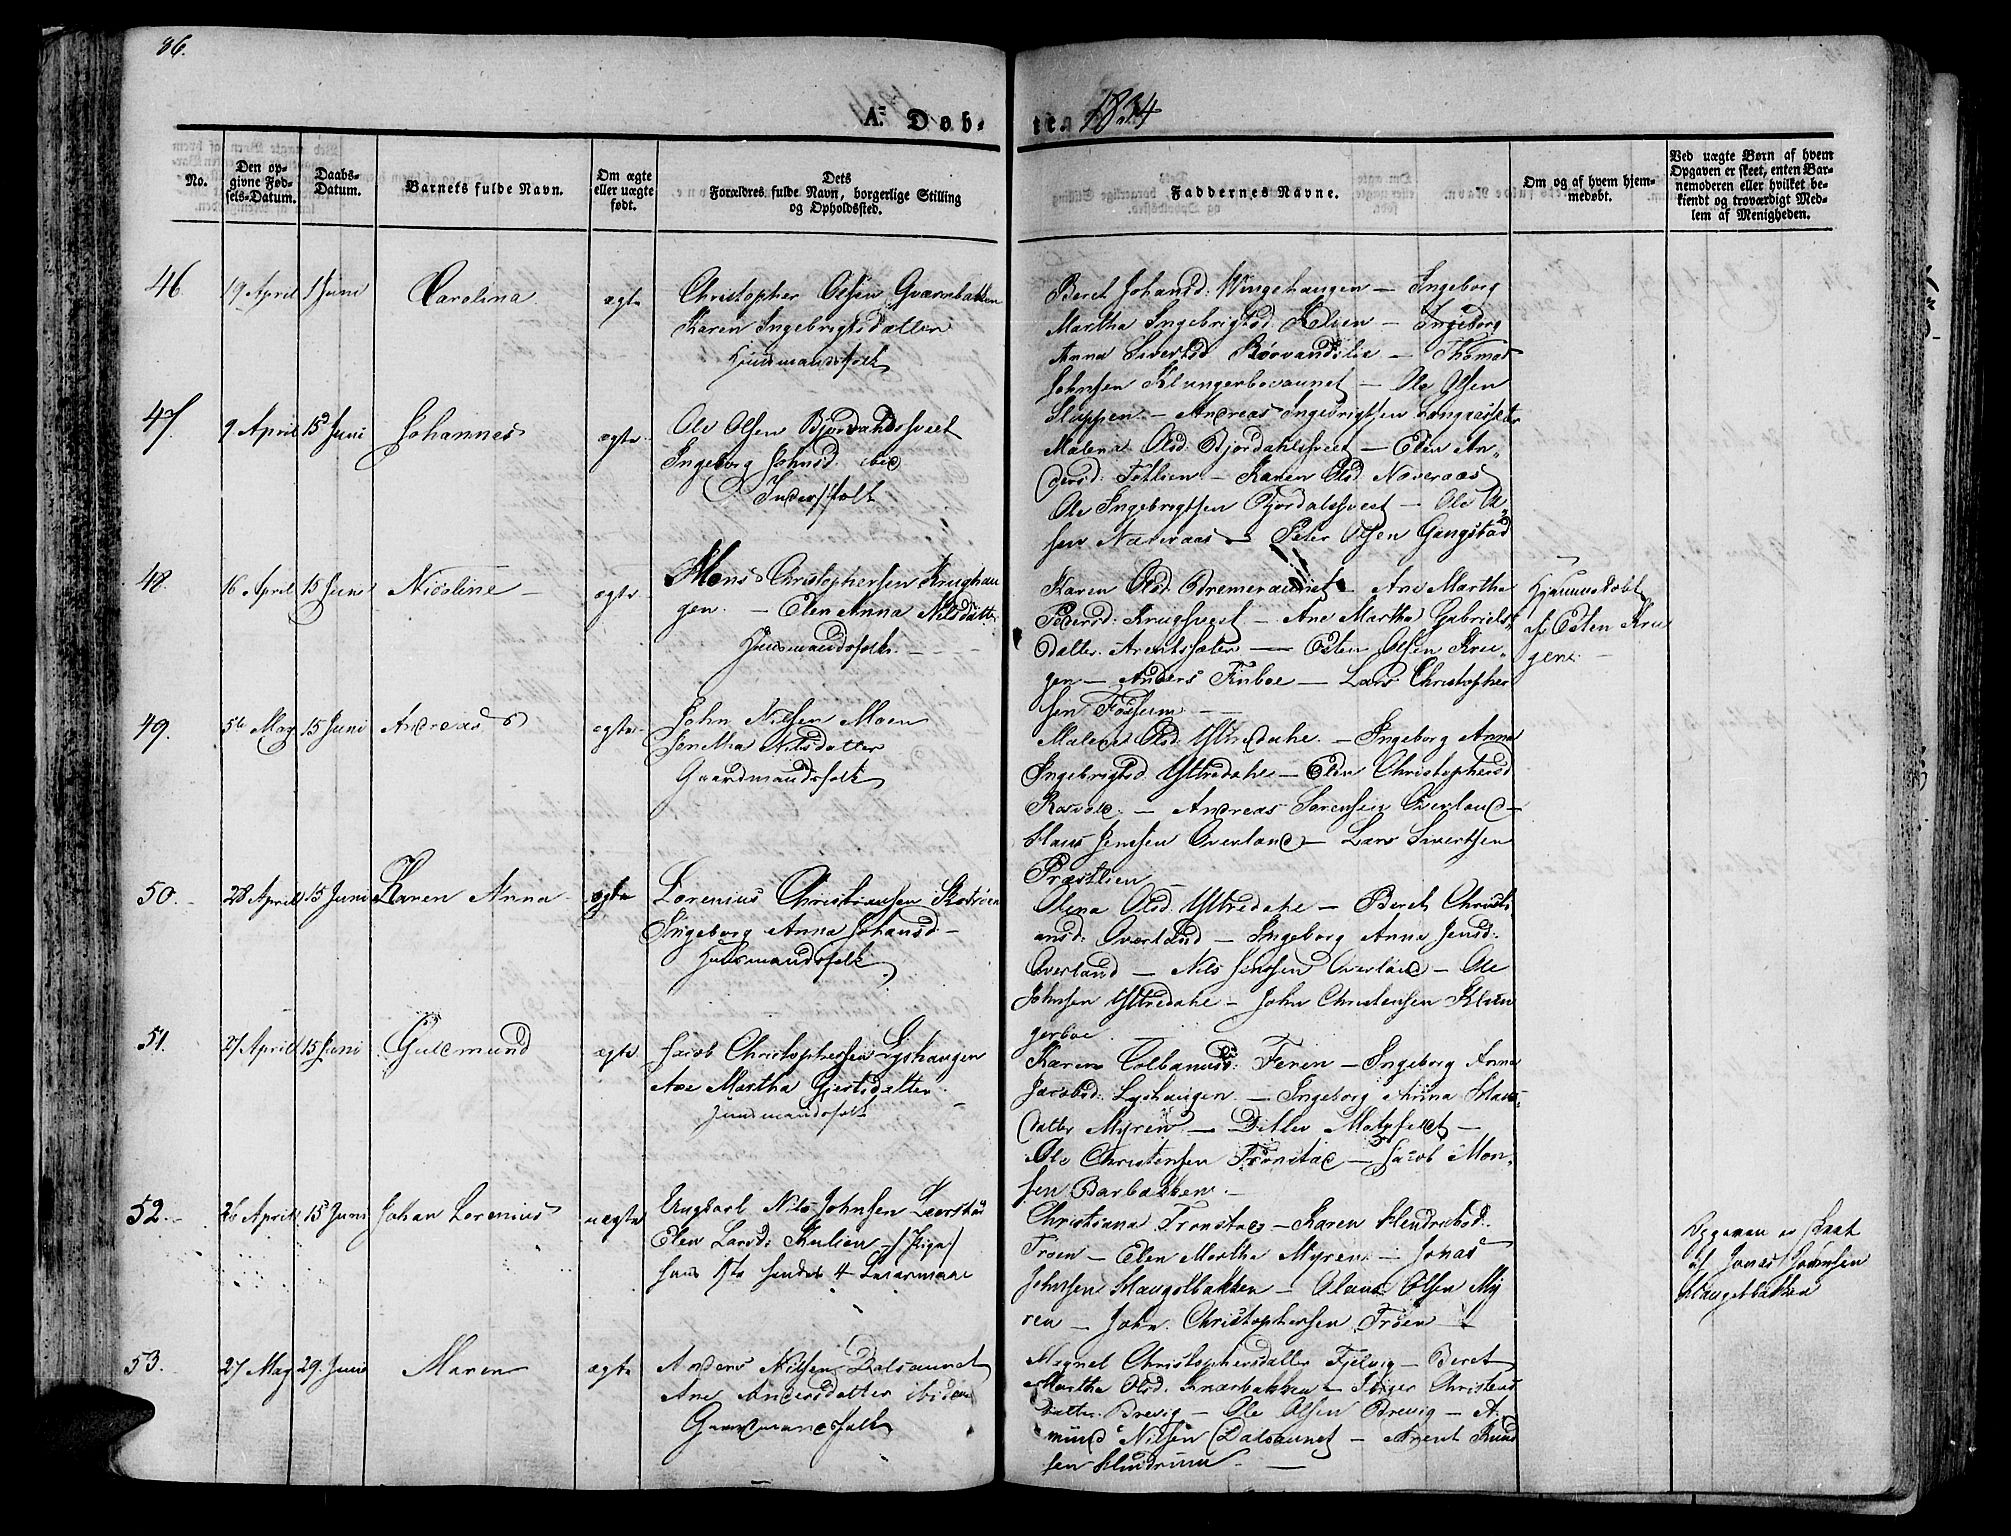 86.
A. Døb-
te. 1834
No.
Den op-
givne Fød-
sels-Datum.
Daabs-
Datum.
Barnets fulde Navn.
Om ægte
eller uægte
født.
Dets
Forældres fulde Navn, borgerlige Stilling
og Opholdssted.
Faddernes Navne.
Om og af hvem hjem-
medøbt.
Ved uægte Børn af hvem
Opgaven er skeet, enten Bar-
nemoderen eller hvilket be-
kiendt og troværdigt Med-
lem af Menigheden.
46
19 April
1 Juni
Carolina
ægte
Christopher Olsen Qværnbakken
Karen Ingebrigtsdatter
Huusmandsfolk
Beret Johansd: Vingehaugen — Ingeborg
Martha Ingebrigtsd: — Ingeborg
Anna Sivertsd — Thomas
Johnsen Klungerboeaunet — Ole Olsen
47.
9 April
15 Juni
Johannes
ægte
Ole Olsen
Ingeborg Johnsd. ibid
Inderstfolk
Sloppen — Andreas Ingebrigtsen
Malena Olsd — Elen An-
dersd: — Karen Olsd Naveraas
Ole Ingebrigtsen — Ole Ol-
sen Naveraas — Peter Olsen Gangstad
48.
16 April
15 Juni
Nicoline —
ægte
Mons Christophersen Krughau
gen. — Elen Anna Nilsdatter
Huusmandsfolk —
Karen Olsd — Ane Martha
Pedersd: — Ane Martha Gabriels-
datter — Osten Olsen Kru-
gen — Anders Finboe — Lars Christopher
sen Fossum —
Hjemmedøbt
af Osten Kru
gen —
49.
5te May
15 Juni
Andreas
ægte
John Nilsen Moen
Nilsdatter
Gaardmandsfolk
Malena Olsd: Yttredahl — Ingeborg Anna
Ingebrigtsd Yttredahl — Elen Christophersd
— Andreas Sørensen Overland —
Claus Jenssen Overland — Lars Sivertsen
Præstlien —
50. —
28 April
15 Juni
Karen Anna —
ægte
Lorenius Christiansen
Ingeborg Anna Johansd —
Huusmandsfolk
Olena Olsd Yttredahl — Beret Christi
ansd: Overland — Ingeborg Anna Jensd:
Overland — Nils Jenssen Overland — Ole
Johnsen Yttredahl — John Christensen Klun
gerboe —
51.
27 April
15 Juni
Guldmund
ægte
Jacob Christophersen Lyshaugen
Ane Martha Gjertsdatter
Huusmandsfolk —
Karen Colbanusd: Feren — Ingeborg Anna
Jacobsd: Lyshaugen — Ingeborg Anna
datter Myren — Ditlev
Ole Christensen Tronstad — Jacob Mon-
sen Barbakken —
52. —
26 April
15 Juni
Johan Lorenius
uægte
Ungkarl Nils Johnsen
Elen Larsd: — /Pige/
hans 1ste hendes 4
Christiana Tronstad — Karen Hendriksd:
Troen — Elen Martha Myren — Jonas
Johnsen Haugsbakken — Olaus Olsen My
ren — John Christophersen Troen —
Opgaven er skeet
af Jonas Johnsen
Haugsbakken
53.
27 May
29. Juni
Maren
ægte
Anders Nilsen Dalsaunet
Ane Andersdatter ibidem
Gaardmandsfolk
Magnel Christophersdatter Fjelvig — Beret
Martha Olsd. — Christens
datter Brevig — Ole Olsen Brevig — A-
mund Nilsen Dalsaunet — Arent Knud
sen Hindrum —